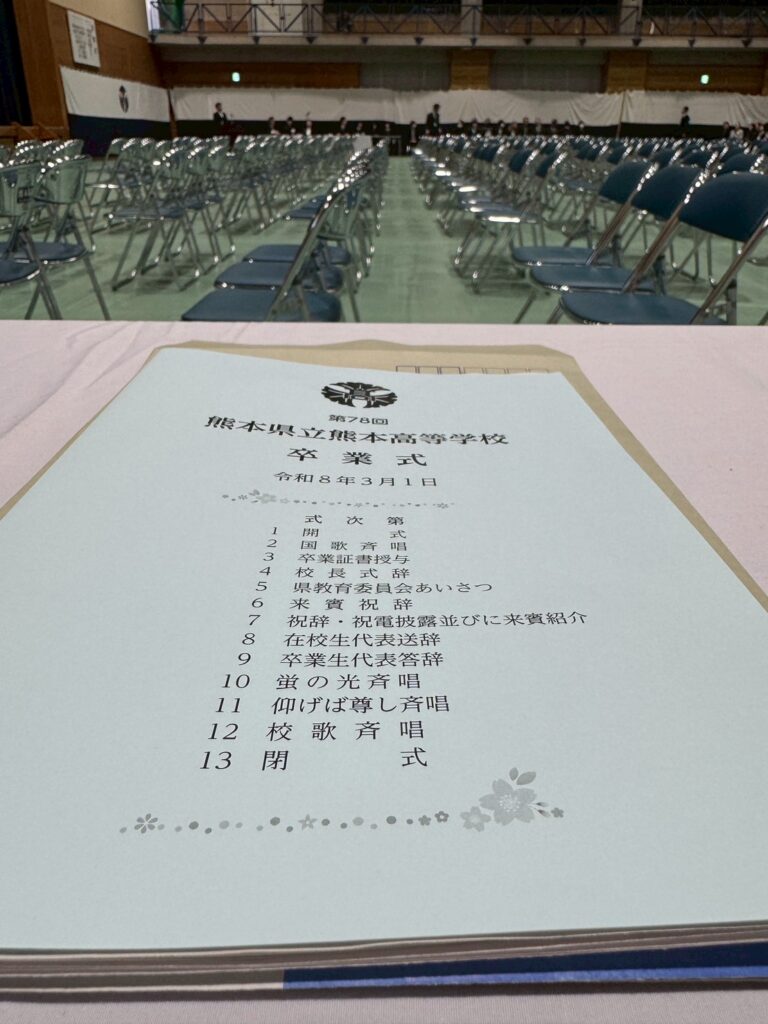 第78回
熊本県立熊本高等学校
卒業式
令和8年3月1日
式次第
1 開式
2 国歌斉唱
3 卒業証書授与
4 校長式辞
5 県教育委員会あいさつ
6 来賓祝辞
7 祝辞・祝電披露並びに来賓紹介
8 在校生代表送辞
9 卒業生代表答辞
10 蛍の光斉唱
11 仰げば尊し斉唱
12 校歌斉唱
13 閉式